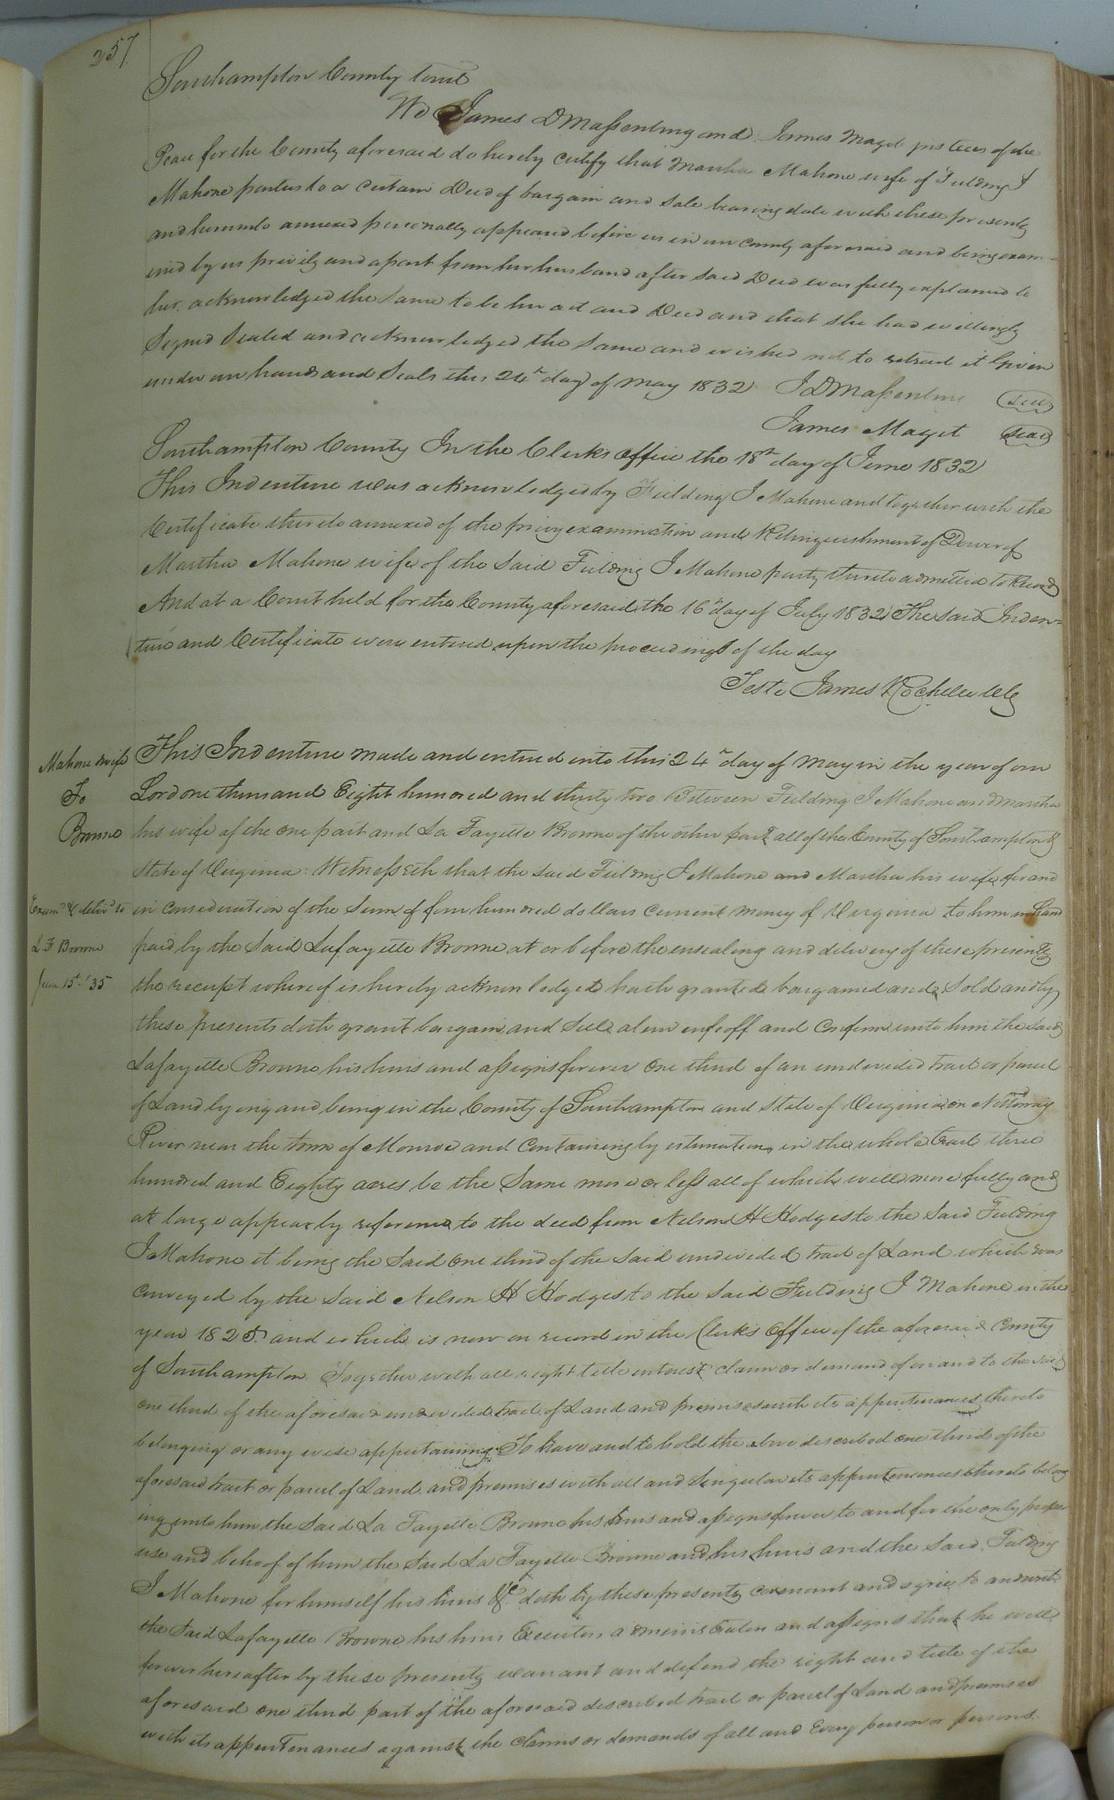 257
Southampton County Court
We James D Massenburg and James Maget justices of the
Peace for the County aforesaid do hereby certify that Martha Mahone wife of Fielding J
Mahone parties to a certain Deed of bargain and sale bearing date with these presents
and hereunto annexed personally appeared before us in our county aforesaid and being exam-
ined by us privily and apart from her husband after said Deed was fully explained to
her, acknowledged the same to be her act and Deed and that she had willingly
Signed Sealed and acknowledged the same and wished not to retract it Given
under our hands and Seals this 24th day of May 1832 J D Massenburg Seal
James Maget Seal
Southampton County In the Clerks office the 18th day of June 1832
This Indenture was acknowledged by Fielding J Mahone and together with the
Certificate thereto annexed of the privy examination and Relinquishment of Dower of
Martha Mahone wife of the Said Fielding J Mahone party thereto admitted to Record
And at a Court held for the County aforesaid the 16th day of July 1832 The said Inden-
ture and Certificate were entered upon the proceedings of the day
Teste James Rochelle Clk
Mahone & wife
To
Browne
Exam'd & deliv'd to
L F Browne
June 15th '35
This Indenture made and entered into this 24th day of May in the year of our
Lord one thousand Eight hundred and thirty two Between Fielding J Mahone and Martha
his wife of the one part and La Fayette Browne of the other part all of the County of Southampton &
State of Virginia Witnesseth that the said Fielding J Mahone and Martha his wife for and
in consideration of the Sum of four hundred dollars current money of Virginia to him in Hand
paid by the Said Lafayette Browne at or before the ensealing and delivery of these presents
the receipt whereof is hereby acknowledged hath granted bargained and Sold and by
these presents doth grant bargain and Sell alien enfeoff and Confirm unto him the Said
Lafayette Browne his heirs and assigns forever One third of an undivided tract or parcel
of Land lying and being in the County of Southampton and State of Virginia on Nottoway
River near the town of Monroe and Containing by estimation in the whole tract three
hundred and Eighty acres be the Same more or less all of which will more fully and
at large appear by reference to the deed from Nelson H Hodges to the Said Fielding
J Mahone it being the Said One third of the said undivided tract of Land which was
Conveyed by the Said Nelson H Hodges to the Said Fielding J Mahone in the
year 1825 and which is now on record in the Clerk's Office of the aforesaid County
of Southampton Together with all right title interest claim or demand of in and to the said
one third of the aforesaid undivided tract of Land and premises with its appurtenances thereto
belonging or any wise appertaining To have and to hold the above described one third of the
aforesaid tract or parcel of Land and premises with all and Singular its appurtenances thereto belong
ing unto him the Said La Fayette Browne his heirs and assigns forever to and for the only proper
use and behoof of him the Said La Fayette Browne and his heirs and the Said Fielding
J Mahone for himself his heirs &c doth by these presents covenant and agree to and with
the Said Lafayette Browne his heirs Executors administrators and assigns that he will
forever hereafter by these presents warrant and defend the right and title of the
aforesaid one third part of the aforesaid described tract or parcel of Land and premises
with its appurtenances against the claims or demands of all and Every person or persons